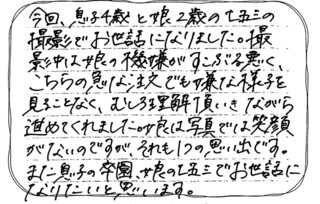 今回、息子4歳と娘2歳の七五三の
撮影でお世話になりました。撮
影中は娘の機嫌がすこぶる悪く、
こちらの急な注文でも嫌な様子を
見ることなく、むしろ理解頂いきながら
進めてくれました。娘は写真では笑顔
がないのですが、それも1つの思い出です。
また息子の卒園、娘の七五三でお世話に
なりたいと思います。